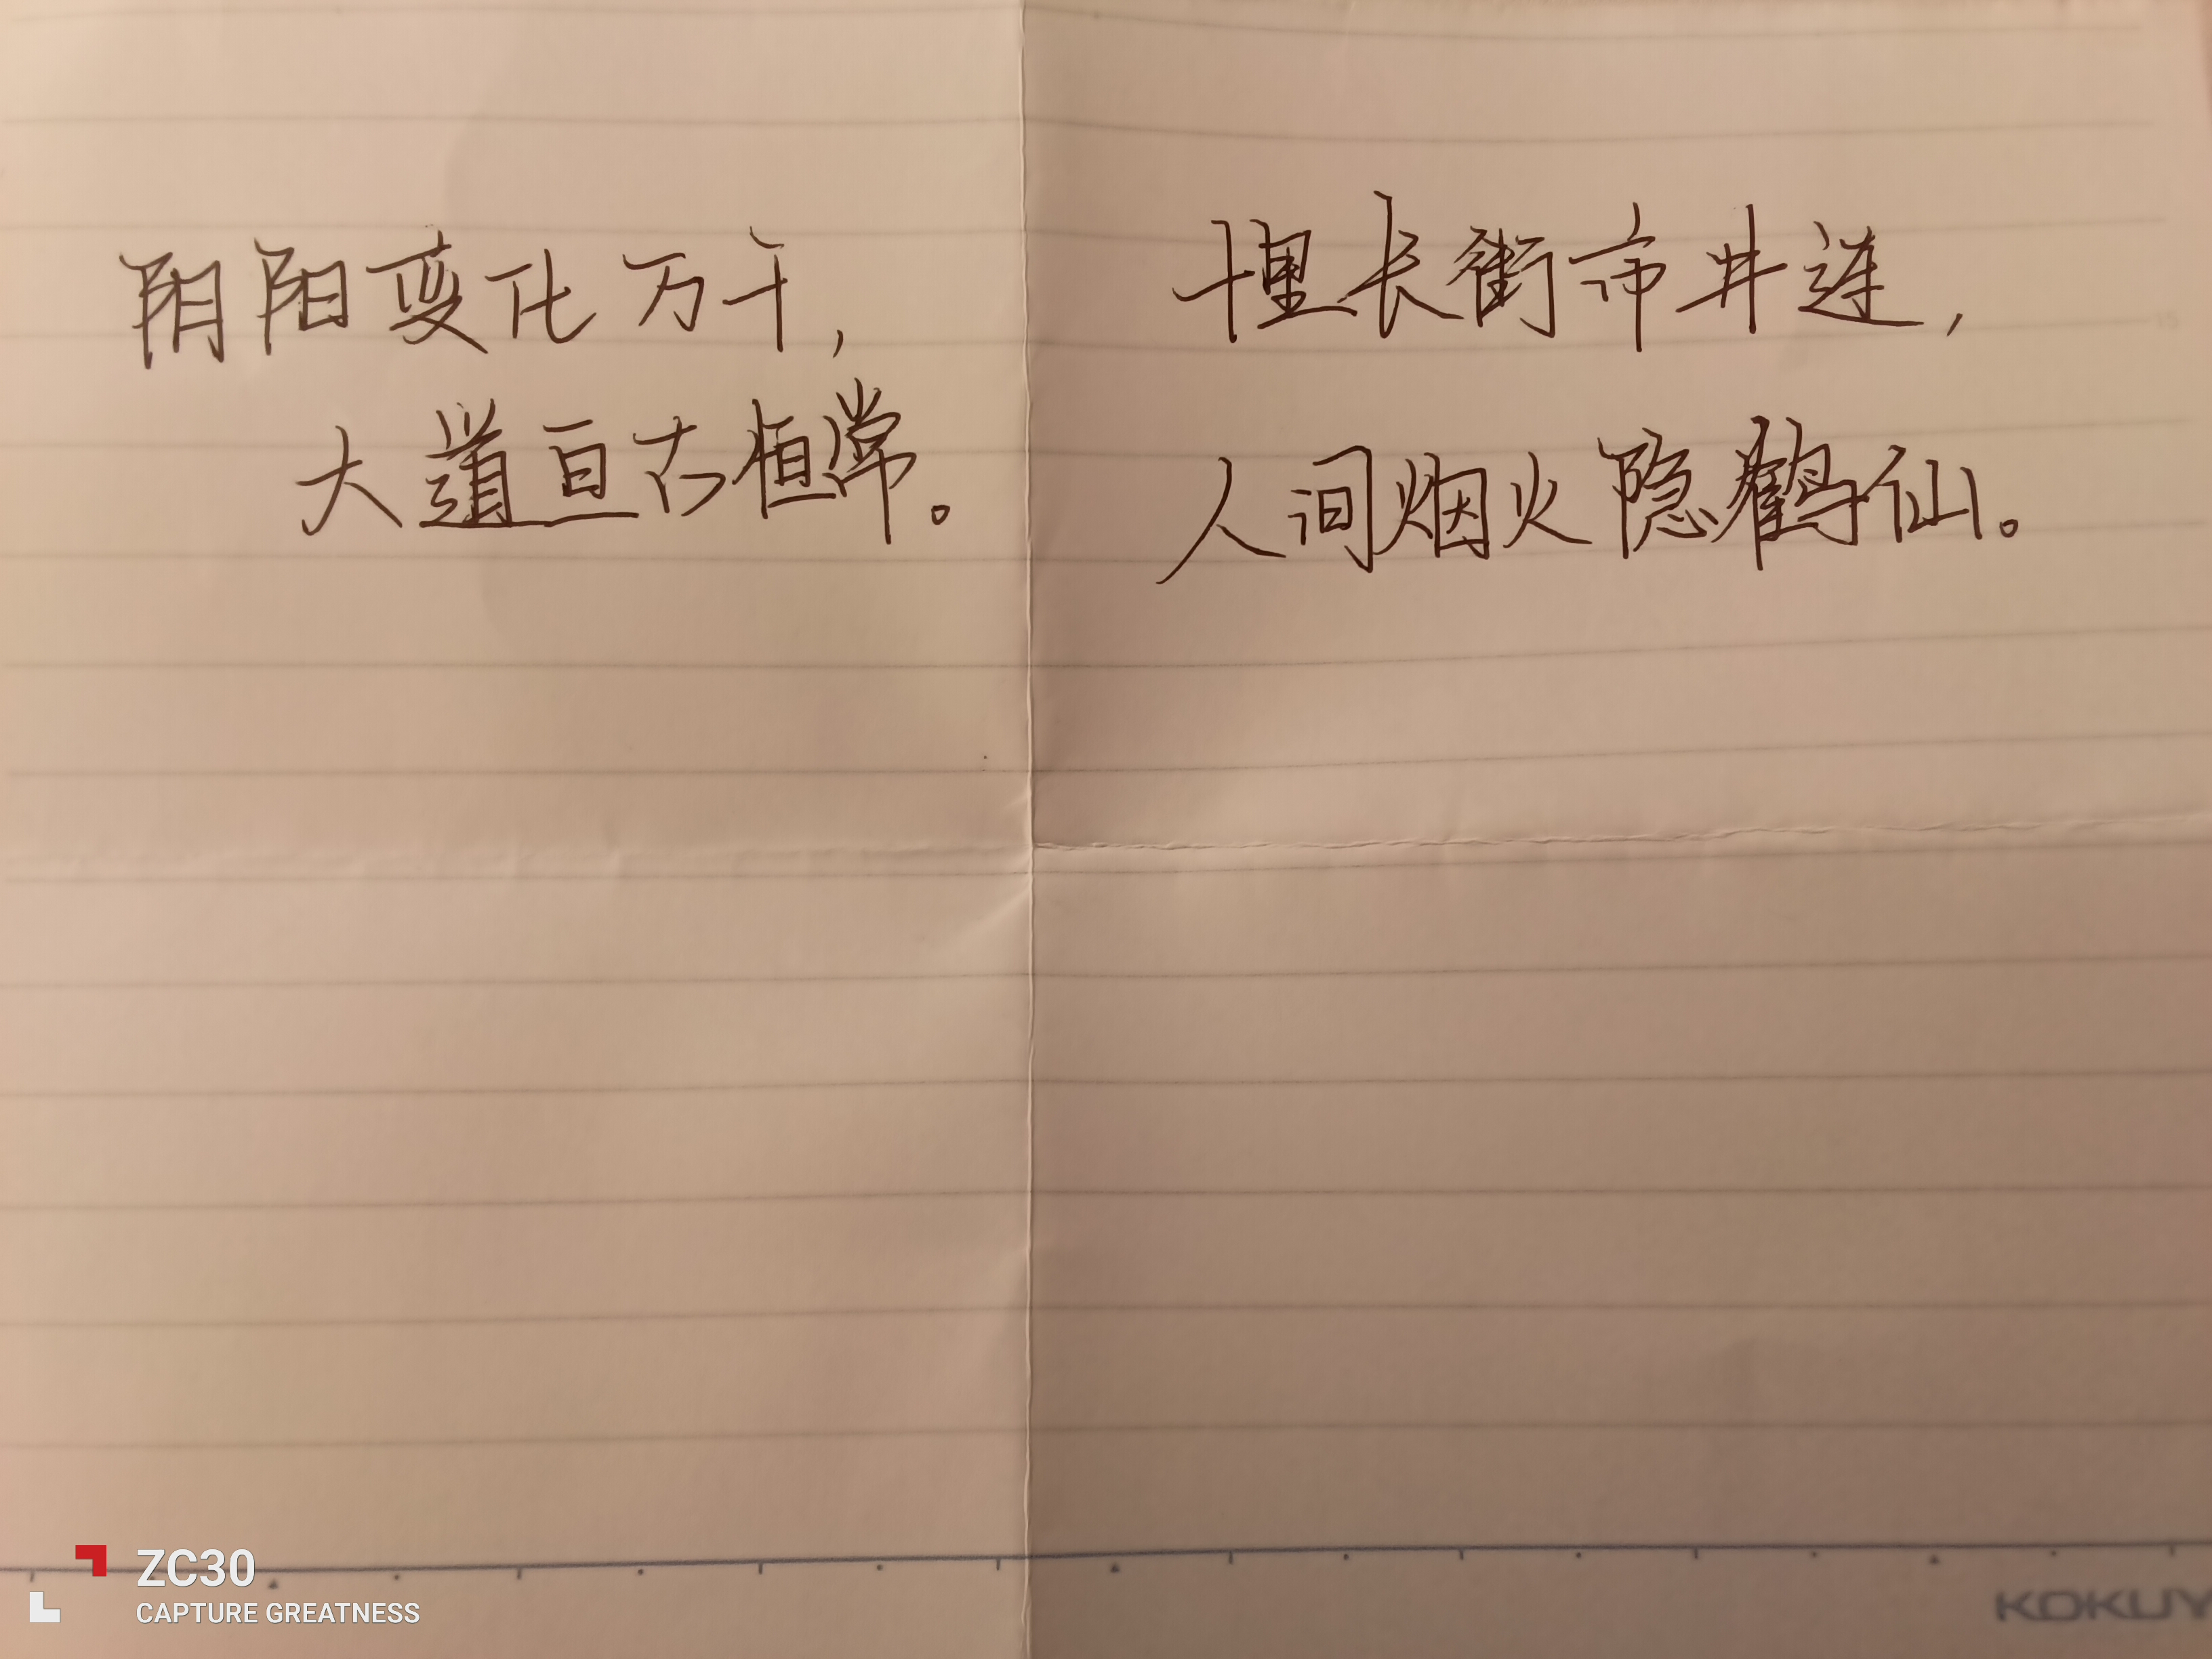 阴阳变化万千，
大道亘古恒常。
十里长街市井连，
人间烟火隐鹤仙。
ZC30
CAPTURE GREATNESS
KOKUY